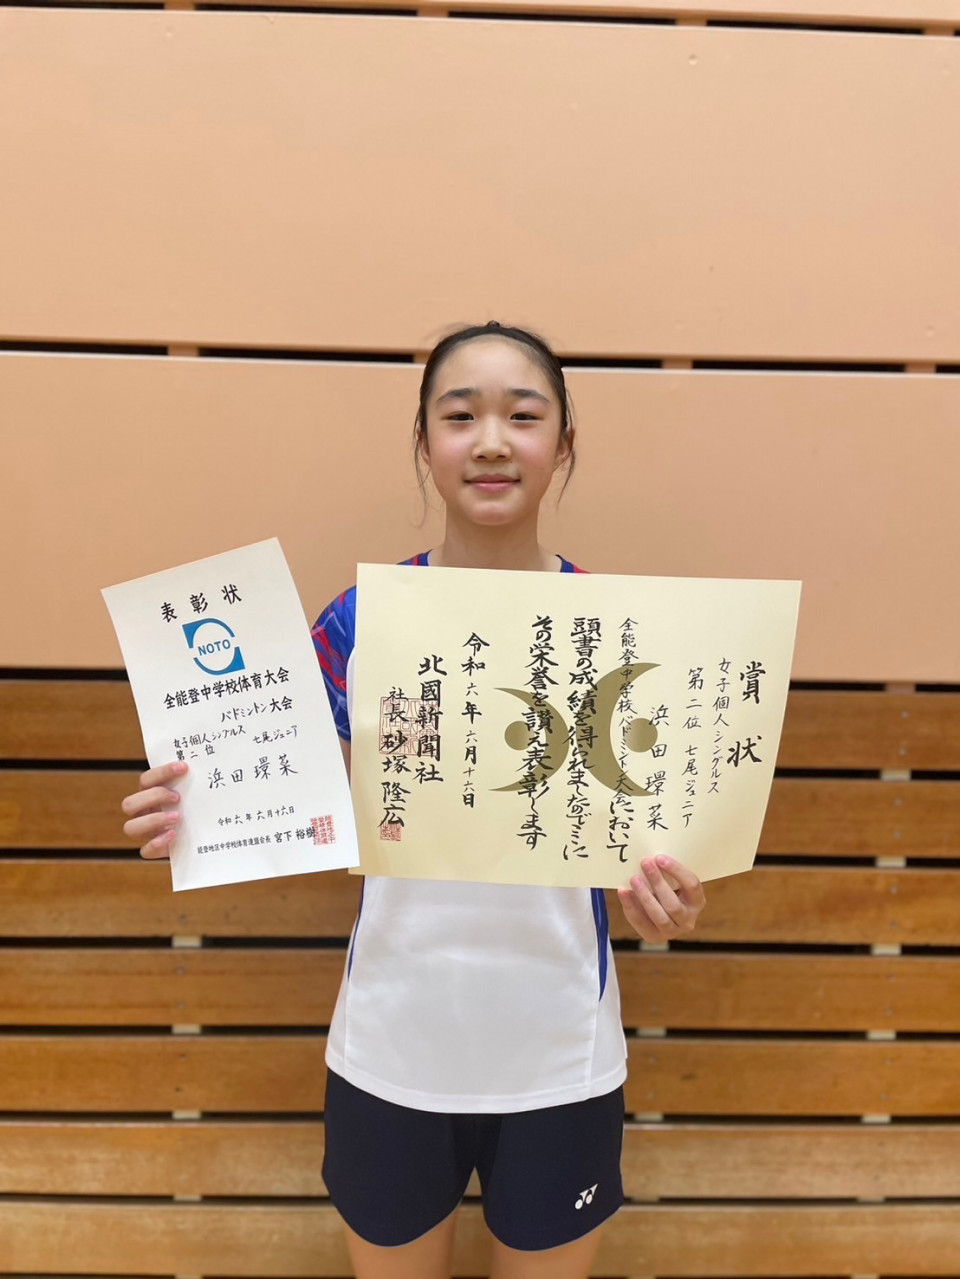 表彰状
NOTO
全能登中学校体育大会
バドミントン大会
女子個人シングルス
第二位
七尾ジュニア
浜田環菜
令和六年六月十六日
能登地区中学校体育連盟会長 宮下裕樹
賞状
女子個人シングルス
第二位 七尾ジュニア
浜田環菜
全能登中学校バドミントン大会において
頭書の成績を得られましたのでここに
その栄誉を讃え表彰します
令和六年六月十六日
北國新聞社
社長 砂塚隆広